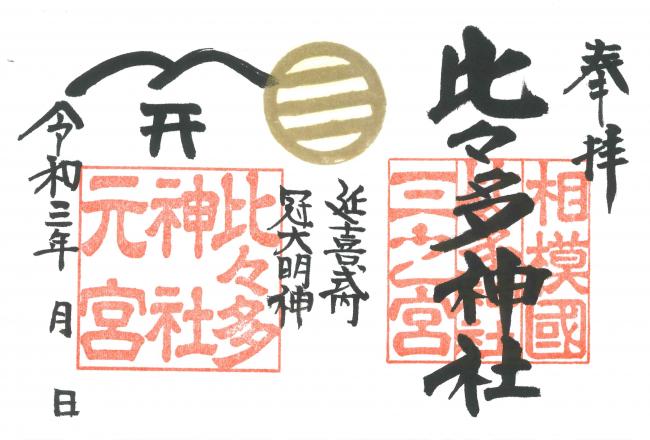 奉拝
相模國
比々多神社
三之宮
比々多神社
延喜式内
冠大明神
比々多
神社
元宮
令和三年 月 日